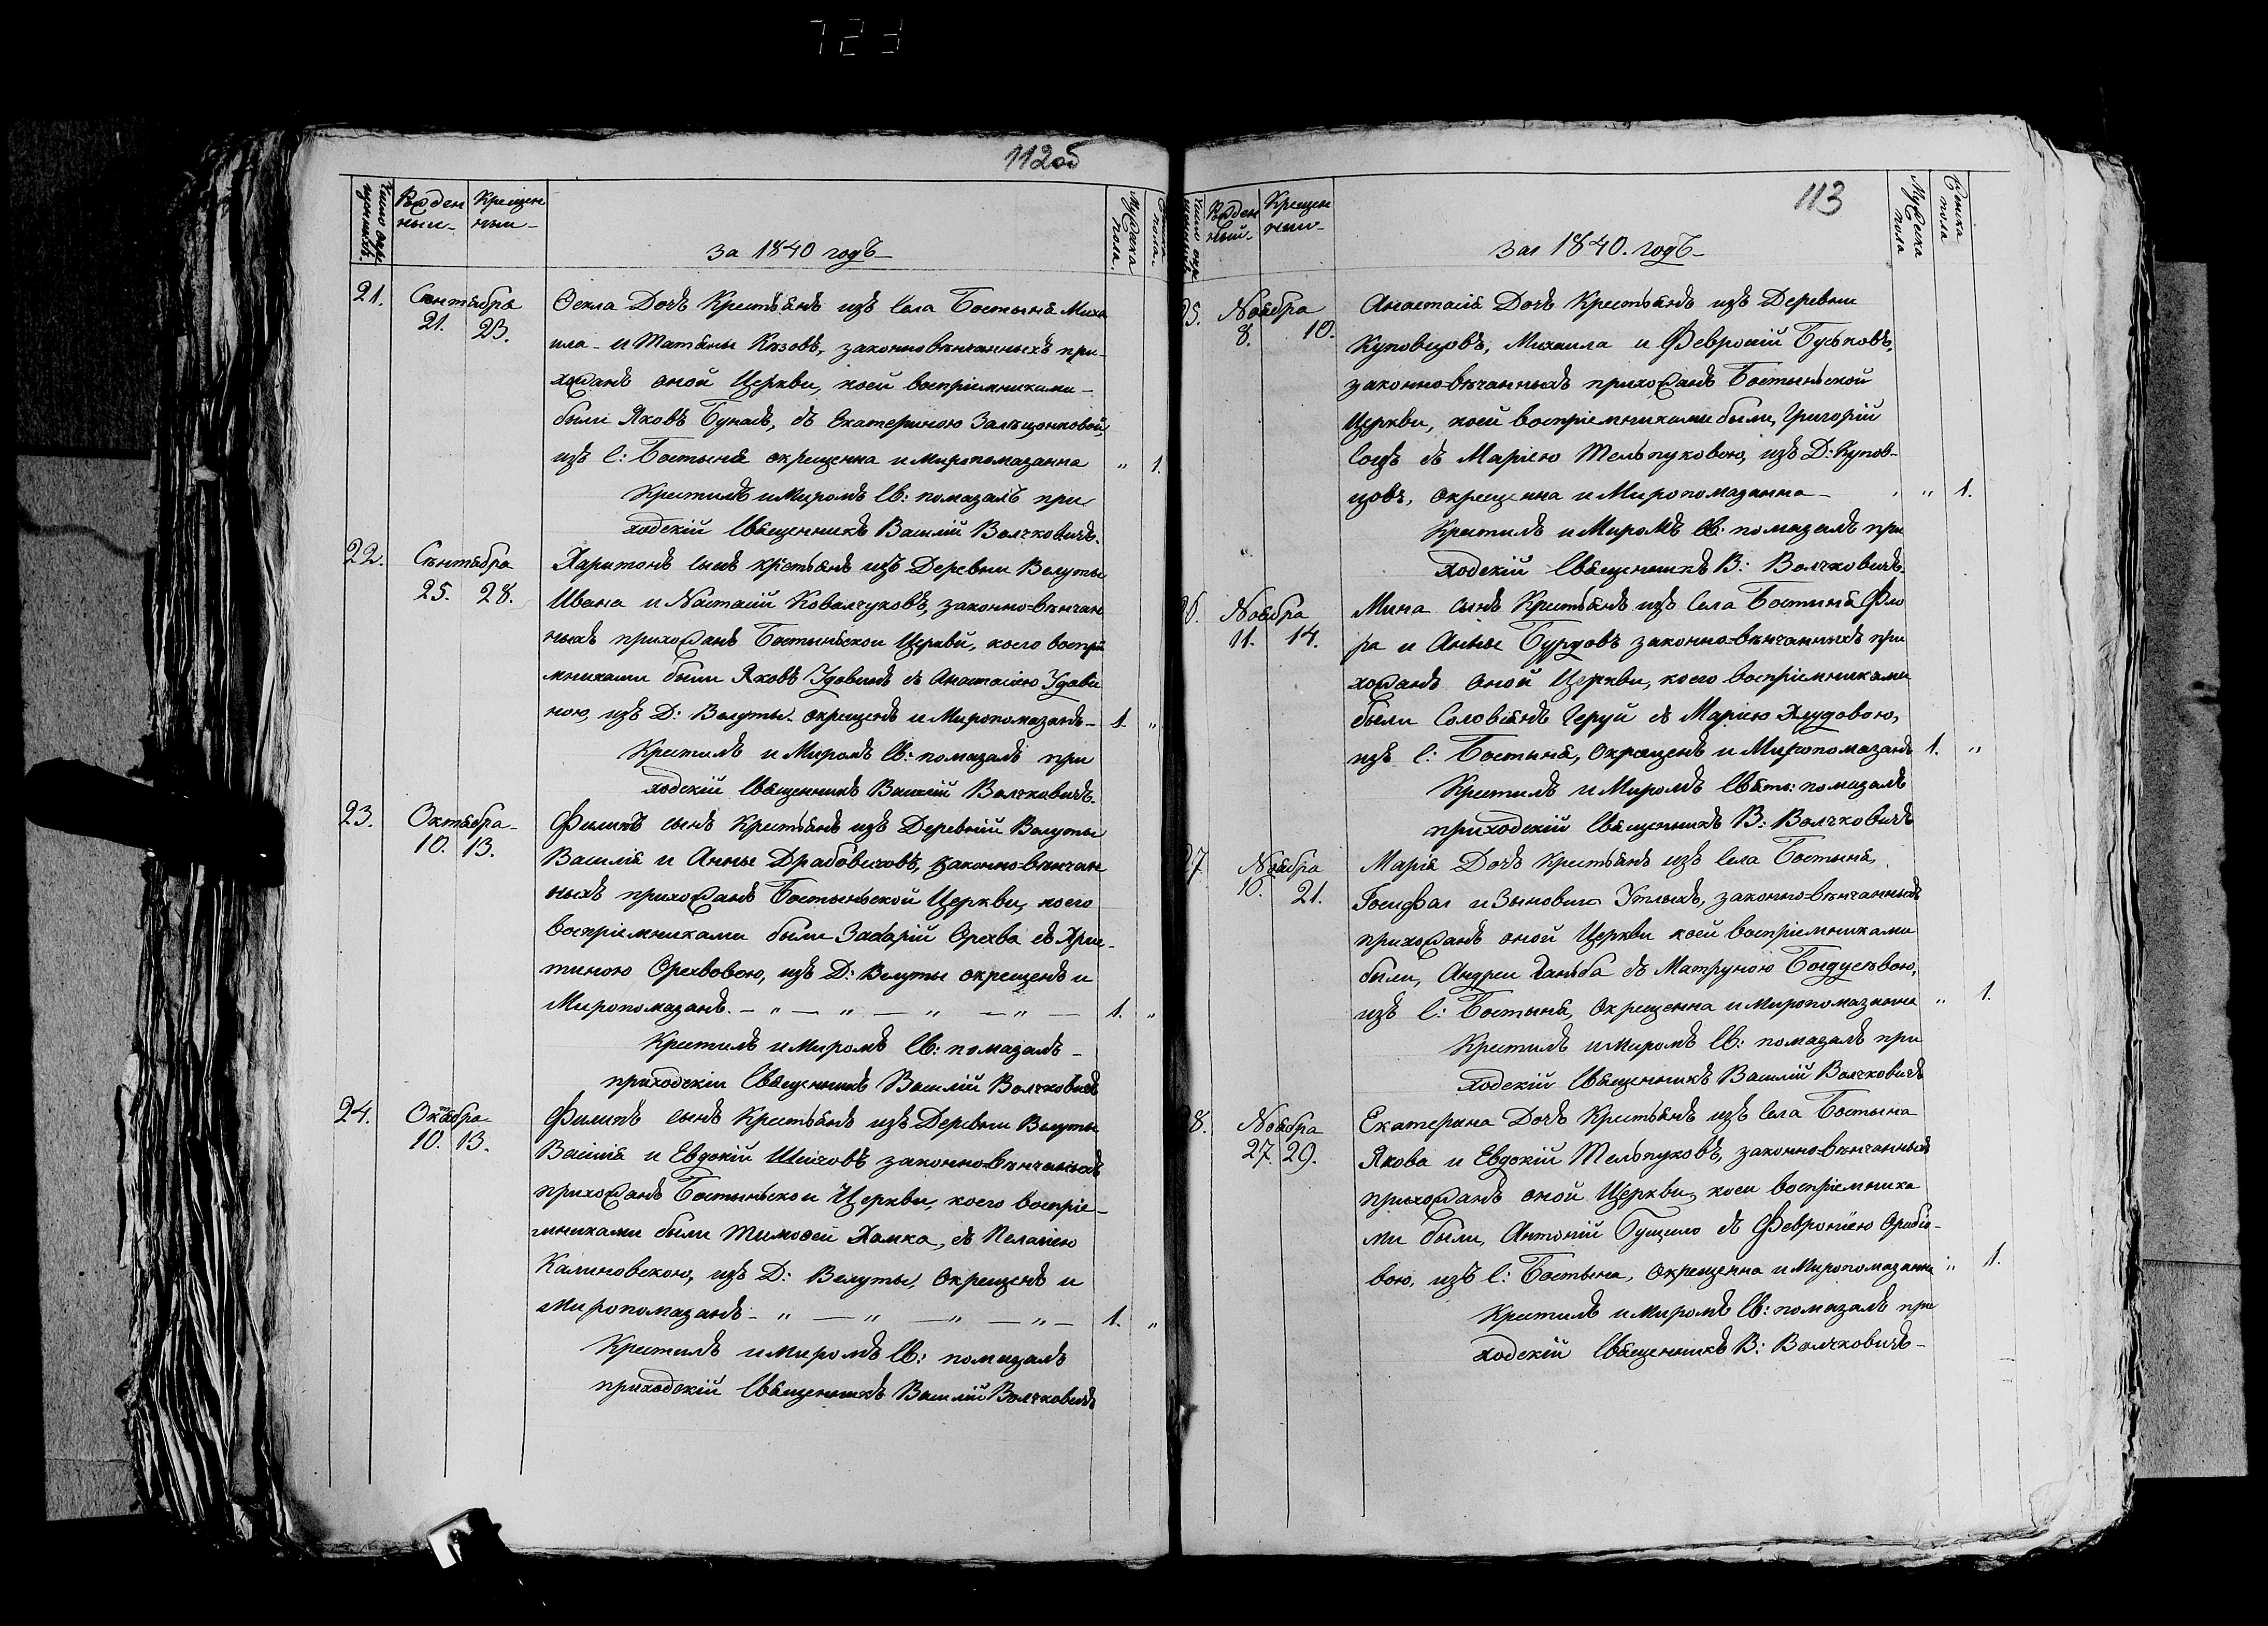 723
112об
Рожден
ныи
Крещен
ныи
за 1840 годъ
Мужеска
пола.
21. Сентября
21. 23.
Ѳекла Дочь Крестьянъ изъ Села Бостыня Миха
ила и Татьяны Кезовъ, законновѣнчанныхъ при-
хожанъ оной Церкви, коей воспріемниками
были Яковъ Бунасъ, съ Екатериною
изъ С: Бостыня окрещенна и Миропомазанна " 1.
Крестилъ и Миромъ Св: помазалъ при
ходскій Священникъ Василій Волчковичъ.
22. Сентября
25. 28.
Харитонъ сынъ крестьянъ изъ Деревни Велуты
Ивана и Настасіи Ковалчуковъ, законно-вѣнчан
ныхъ прихожанъ Бостыньской Церкви, коего воспріе
мниками были Яковъ съ Анастасіею
ною, изъ Д: Велуты окрещенъ и Миропомазанъ 1. "
Крестилъ и Миромъ Св: помазалъ при
ходскій Священникъ Василій Волчковичъ.
23. Октября
10. 13.
Филипъ сынъ Крестьянъ изъ Деревній Велуты
Василія и Анны Драбовичовъ, законно-вѣнчан
ныхъ прихожанъ Бостыньской Церкви, коего
воспріемниками были Захарій Орехва съ Хрис-
тиною Орехвовою, изъ Д: Велуты окрещенъ и
Миропомазанъ. — " — " — " — " — 1. "
Крестилъ и Миромъ Св: помазалъ
приходскіи Священникъ Василій Волчковичъ
24. Октября
10. 13.
Филипъ сынъ Крестьянъ изъ Деревни Велуты
Василія и Евдокіи законно-вѣнчанныхъ
прихожанъ Бостыньскои Церкви, коего воспріе-
мниками были Тимоѳеи Хомка, съ Пелагіею
Калиновскою, изъ Д: Велуты, Окрещенъ и
Миропомазанъ - " — " — " — " — 1. "
Крестилъ и Миромъ Св: помазалъ
приходскій Священникъ Василій Волчковичъ
113
Рожден
ный
Крещен
ный
за 1840. годъ
Мужеска
пола
Женска
пола
25. Ноября
8. 10.
Анастасія Дочь Крестьянъ изъ Деревни
Куповцовъ, Михаила и Февроніи Буськовъ,
законно-вѣнчанныхъ прихожанъ Бостыньской
Церкви, коей воспріемниками были, Григорій
съ Маріею Тельпуковою, изъ Д: Купов-
цовъ, окрещенна и Миропомазанна " 1.
Крестилъ и Миромъ Св: помазалъ при
ходскій Священникъ В: Волчковичъ.
26. Ноября
11. 14.
Мина сынъ Крестьянъ изъ Села Бостыня Фло
ра и Анны Бурдовъ законно-вѣнчанныхъ при
хожанъ оной Церкви, коего воспріемниками
были съ Маріею Хлудовою,
изъ С: Бостыня, Окрещенъ и Миропомазанъ 1. "
Крестилъ и Миромъ Свято: помазалъ
приходскій Священникъ В: Волчковичъ
27. Ноября
10. 21.
Марія Дочь Крестьянъ изъ Села Бостыня,
Іосифа и Зыновіи законно-вѣнчанныхъ
прихожанъ оной Церкви коей воспріемниками
были, Андреи съ Матруною
изъ С: Бостыня, Окрещенна и Миропомазанна " 1.
Крестилъ и Миромъ Св: помазалъ при
ходскій Священникъ Василій Волчковичъ
28. Ноября
27. 29.
Екатерина Дочь Крестьянъ изъ Села Бостына
Якова и Евдокіи Тельпуковъ, законно-вѣнчанныхъ
прихожанъ оной Церкви, коеи воспріемника
ми были, Антоній Гущило съ Февроніею
вою, изъ С: Бостына, Окрещенна и Миропомазанна " 1.
Крестилъ и Миромъ Св: помазалъ при
ходскій Священникъ В: Волчковичъ